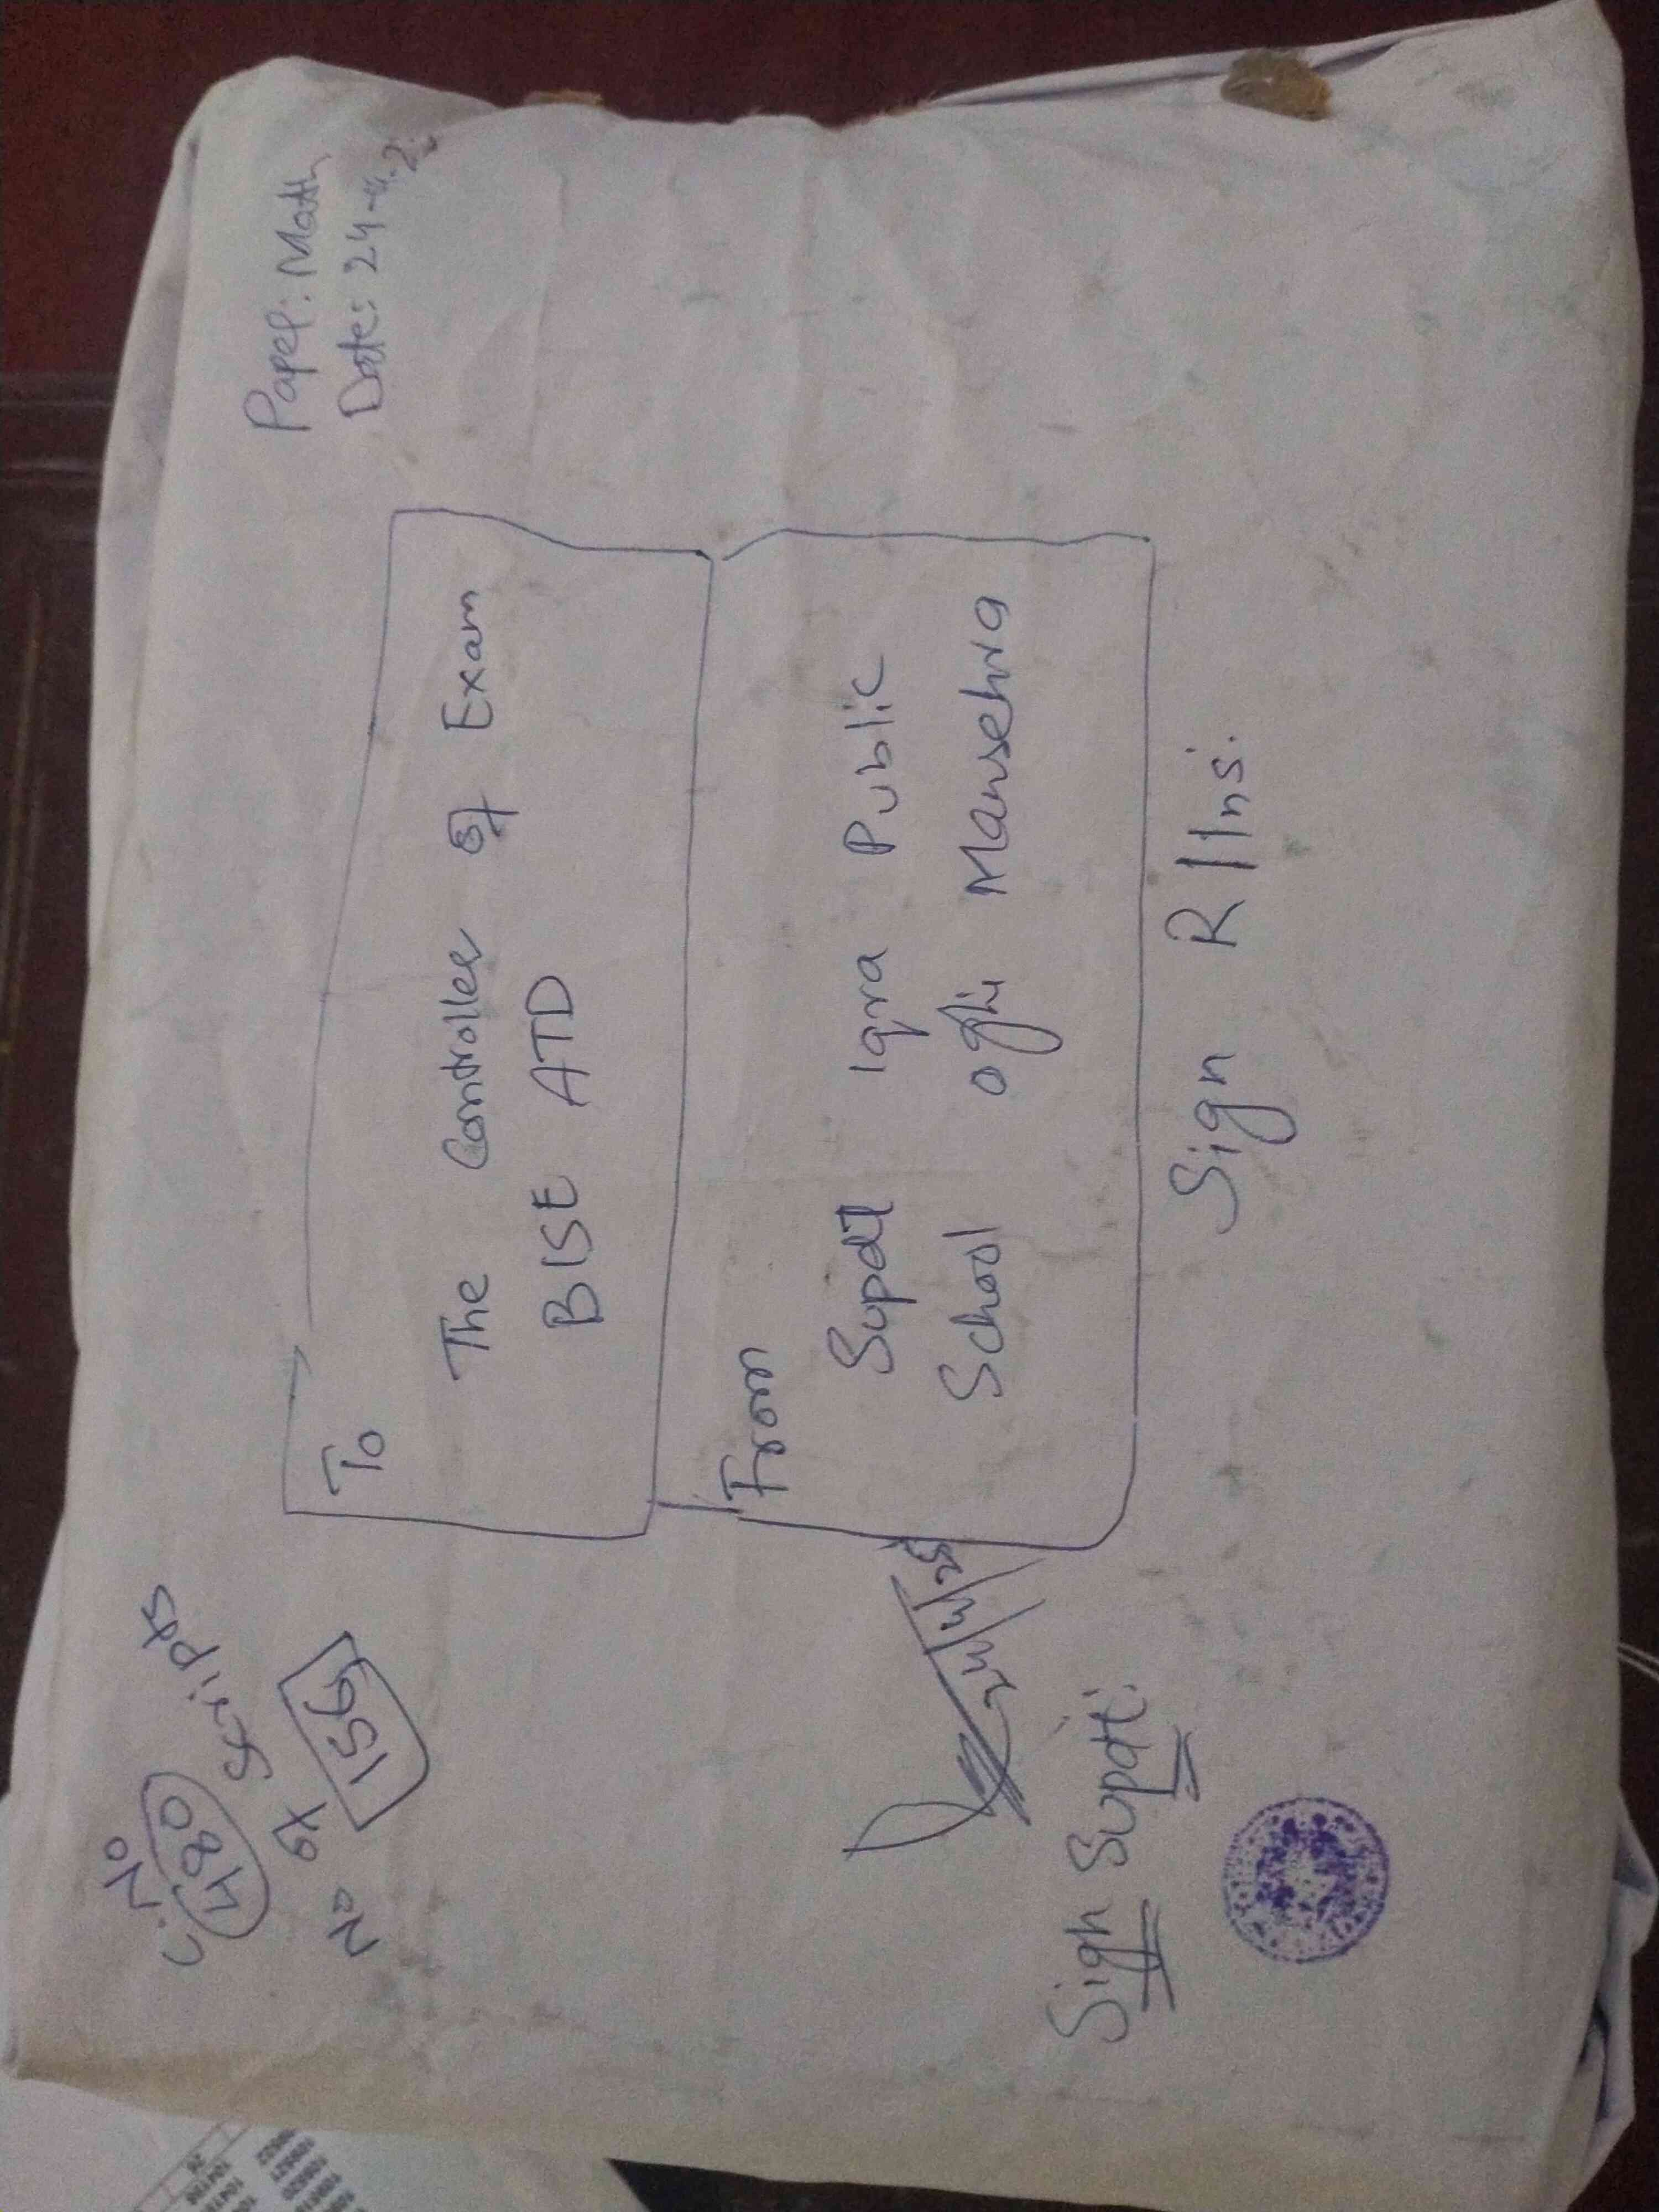 C. No
480
No of Scripts
156
Paper: Math
Date: 24-4-2
To
The Controller of Exam
BISE ATD
From
Supdt Iqra Public
School Oghi Mansehra
24/4/25
Sign Supdt:
Sign R/Ins: